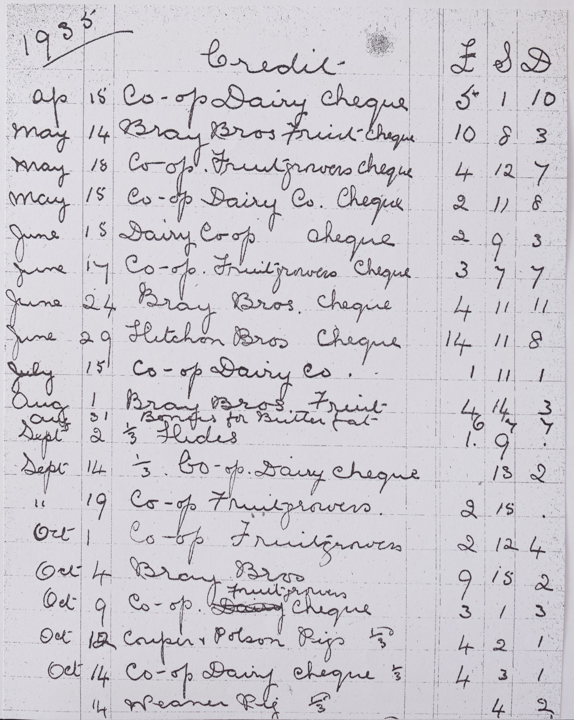 1935
Credit £ S D
Ap 15 Co-op Dairy Cheque 5 1 10
May 14 Bray Bros Fruit Cheque 10 8 3
May 18 Co-op. Fruitgrowers Cheque 4 12 7
May 15 Co-op Dairy Co. Cheque 2 11 8
June 15 Dairy Co-op cheque 2 9 3
June 17 Co-op. Fruitgrowers Cheque 3 7 7
June 24 Bray Bros. Cheque 4 11 11
June 29 Hitchon Bros Cheque 14 11 8
July 15 Co-op Dairy Co. 1 11 1
Aug 1 Bray Bros. Fruit 4 14 3
Aug 31 Bonus for Butter fat 6 7 7
Sept 2 1/3 Hides 1. 9 .
Sept 14 1/3. Co-op. Dairy cheque 13 2
" 19 Co-op Fruitgrowers. 2 15 .
Oct 1 Co-op Fruitgrowers 2 12 4
Oct 4 Bray Bros 9 15 2
Fruitgrowers
Oct 9 Co-op. Dairy Cheque 3 1 3
Oct 12 Couper & Polson Pigs 1/3 4 2 1
Oct 14 Co-op Dairy cheque 1/3 4 3 1
14 Weaner Pig 1/3 4 2